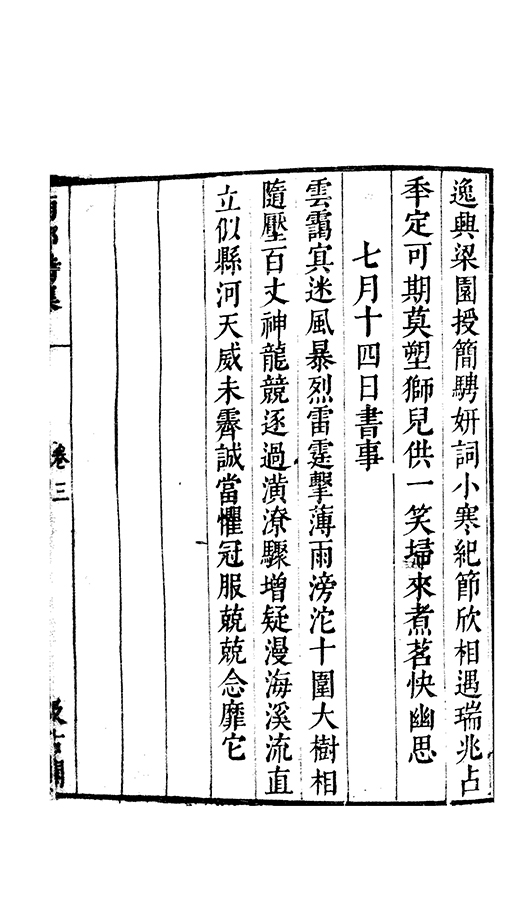 逸興梁園授簡騁妍詞小寒紀節欣相遇瑞兆占
秊定可期莫塑獅兒供一笑埽來煮茗快幽思
七月十四日書事
雲靄寘迷風暴烈雷霆擊薄雨滂沱十圍大樹相
隨壓百丈神龍競逐過潢潦驟增疑漫海溪流直
立似縣河天威未霽誠當懼冠服兢兢念靡它
卷三